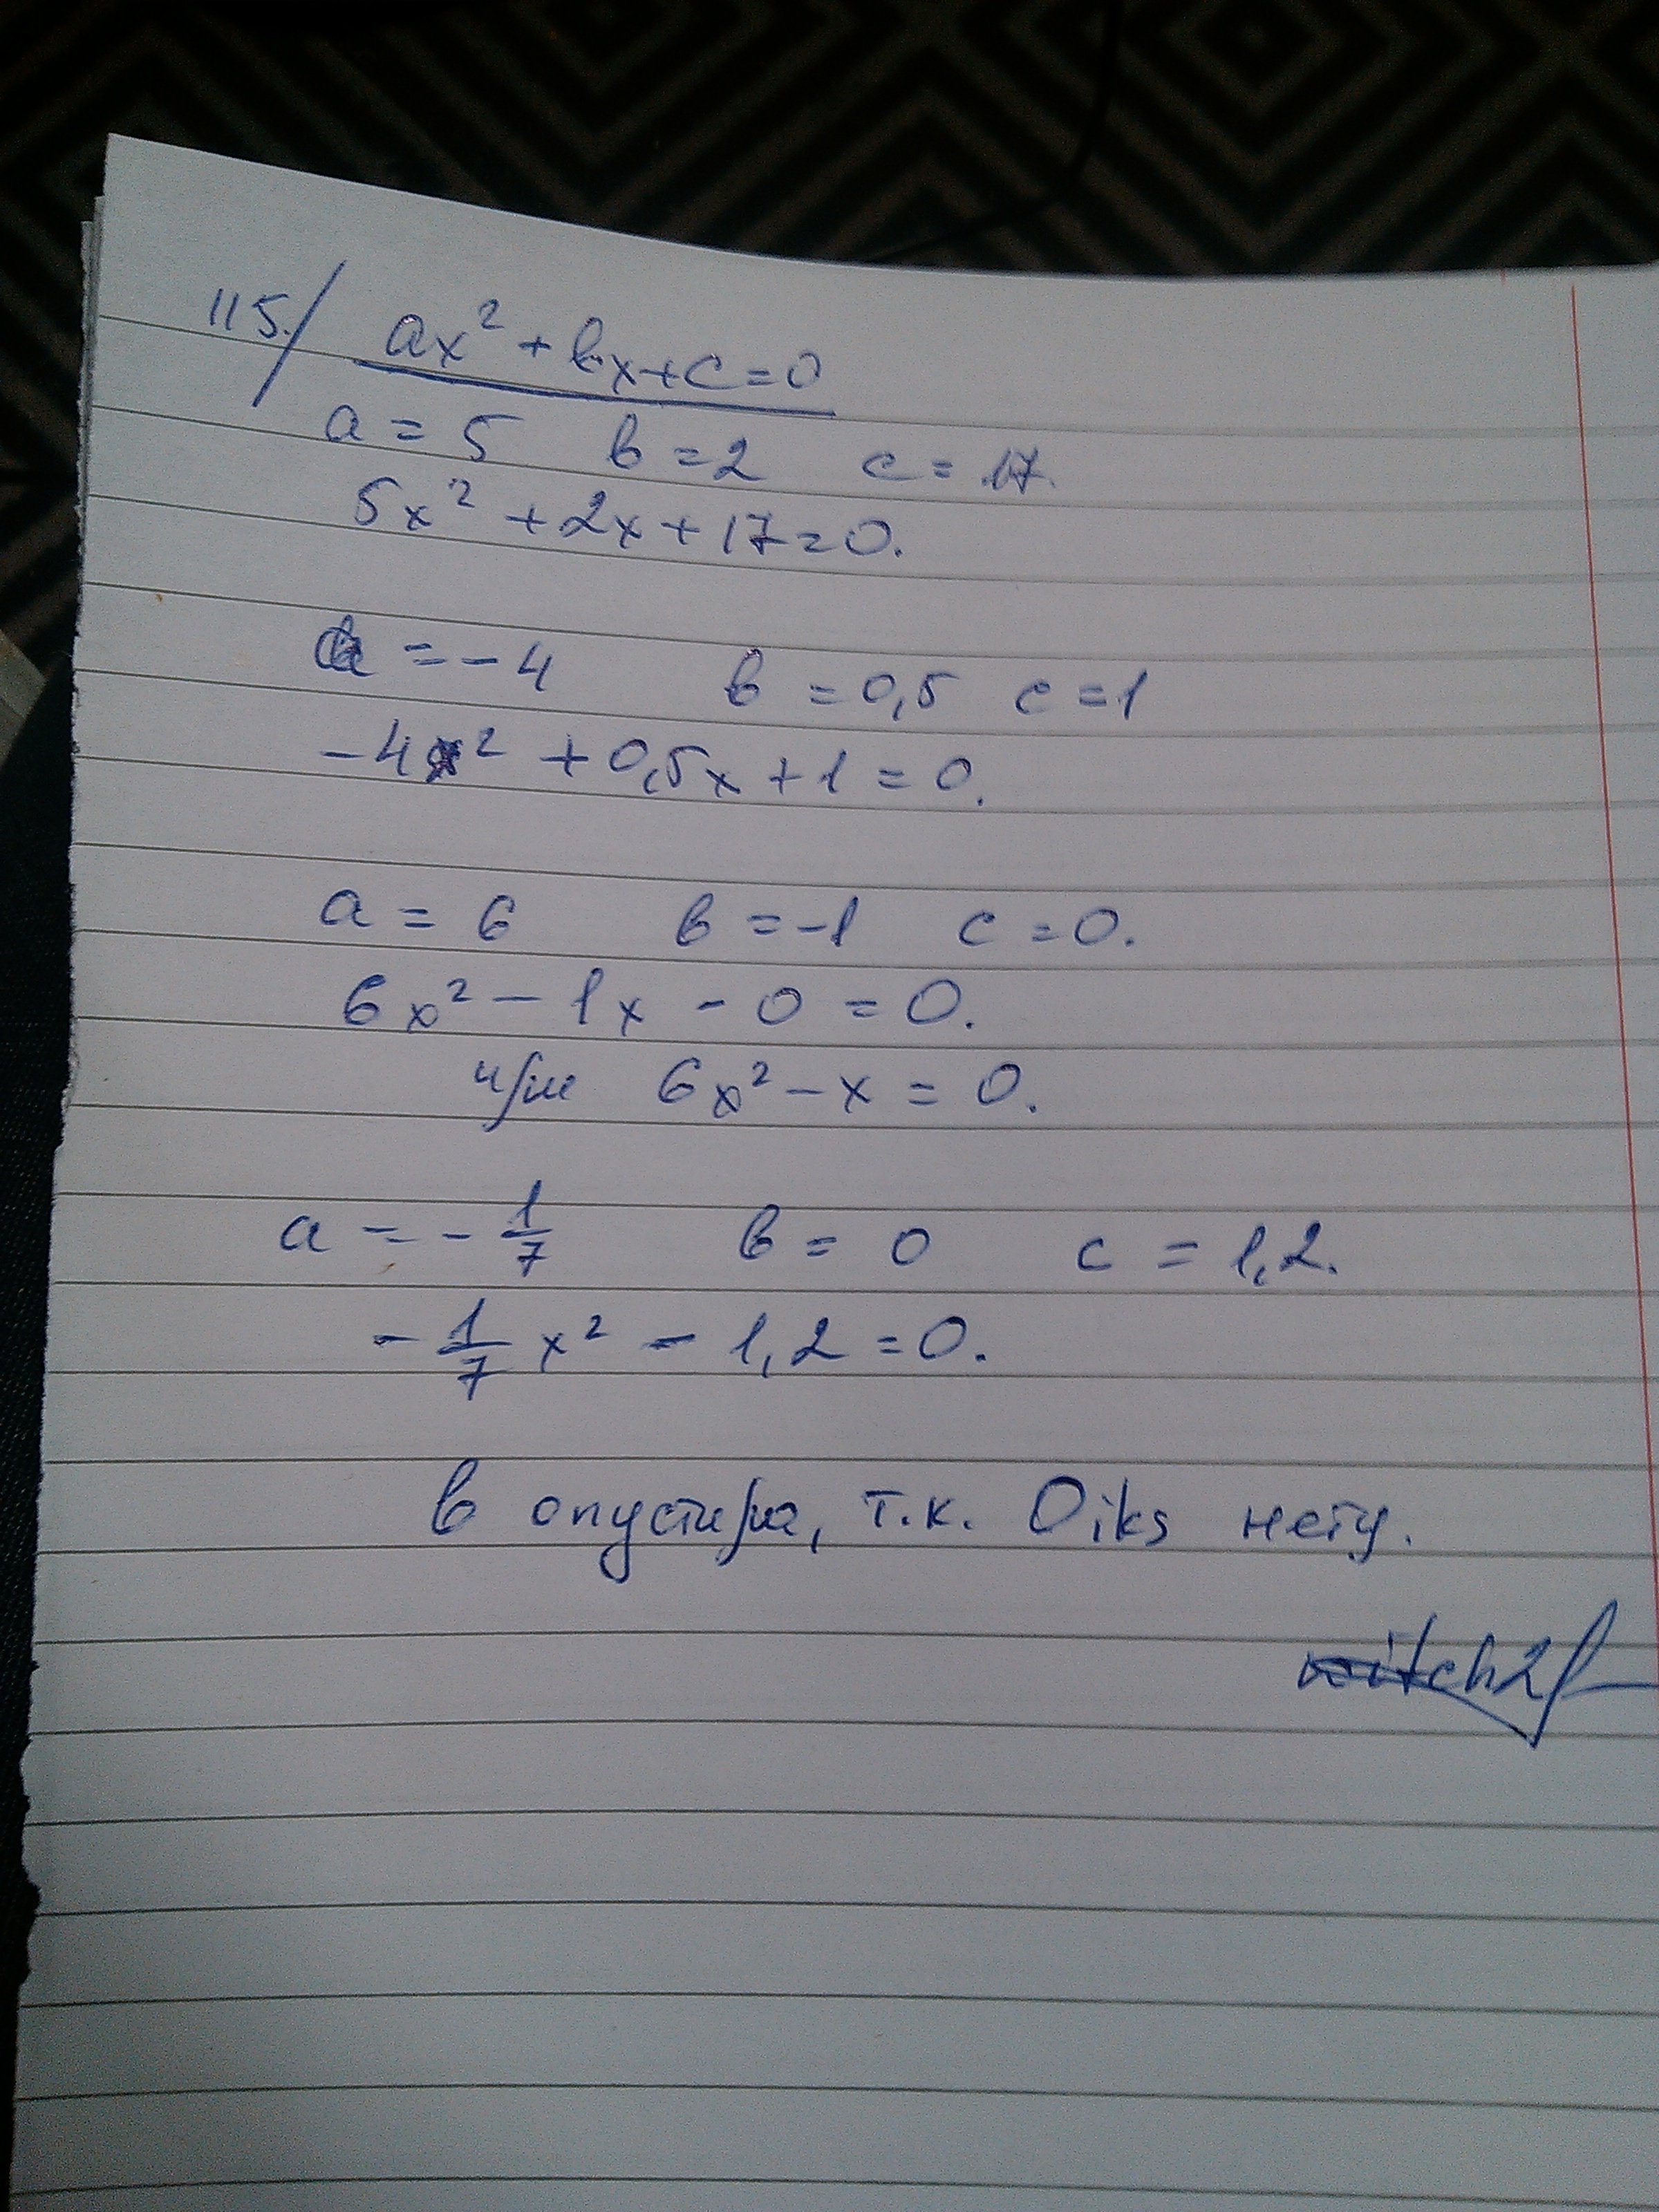 115./ ax² + bx + c = 0
a = 5 b = 2 c = 17.
5x² + 2x + 17 = 0.
a = -4 b = 0,5 c = 1
-4x² + 0,5x + 1 = 0.
a = 6 b = -1 c = 0.
6x² - 1x - 0 = 0.
или 6x² - x = 0.
a = - 1/7 b = 0 c = 1,2.
- 1/7 x² - 1,2 = 0.
b опустила, т.к. 0 iks нету.